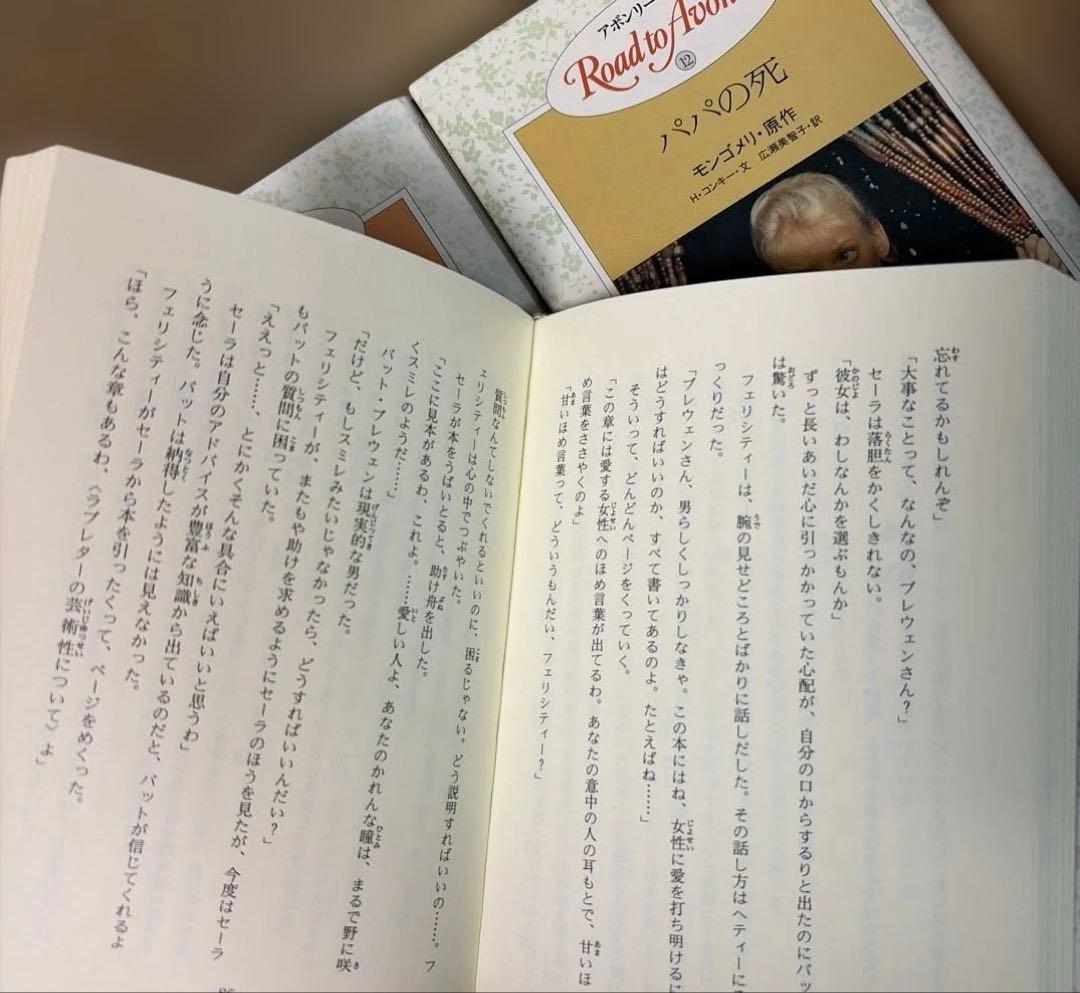 アボンリー
Road to Avon
12
パパの死
モンゴメリ・原作
H・コンキー・文 広瀬美智子・訳
忘れてるかもしれんぞ」
「大事なことって、なんなの、プレウェンさん？」
セーラは落胆をかくしきれない。
「彼女は、わしなんかを選ぶもんか」
ずっと長いあいだ心に引っかかっていた心配が、自分の口からするりと出たのにパッ
は驚いた。
フェリシティーは、腕の見せどころとばかりに話しだした。その話し方はヘティーに
っくりだった。
「プレウェンさん、男らしくしっかりしなきゃ。この本にはね、女性に愛を打ち明けるに
はどうすればいいのか、すべて書いてあるのよ。たとえばね……」
そういって、どんどんページをくっていく。
「この章には愛する女性へのほめ言葉が出てるわ。あなたの意中の人の耳もとで、甘いほ
め言葉をささやくのよ」
「甘いほめ言葉って、どういうもんだい、フェリシティー？」
質問なんてしないでくれるといいのに、困るじゃない。どう説明すればいいの……。フ
ェリシティーは心の中でつぶやいた。
セーラが本をうばいとると、助け舟を出した。
「ここに見本があるわ、これよ。……愛しい人よ、あなたのかれんな瞳は、まるで野に咲
くスミレのようだ……」
パット・プレウェンは現実的な男だった。
「だけど、もしスミレみたいじゃなかったら、どうすればいいんだい？」
フェリシティーが、またもや助けを求めるようにセーラのほうを見たが、今度はセーラ
もパットの質問に困っていた。
「ええっと……、とにかくそんな具合にいえばいいと思うわ」
セーラは自分のアドバイスが豊富な知識から出ているのだと、パットが信じてくれるよ
うに念じた。パットは納得したようには見えなかった。
フェリシティーがセーラから本を引ったくって、ページをめくった。
「ほら、こんな章もあるわ、〈ラブレターの芸術性について〉よ」